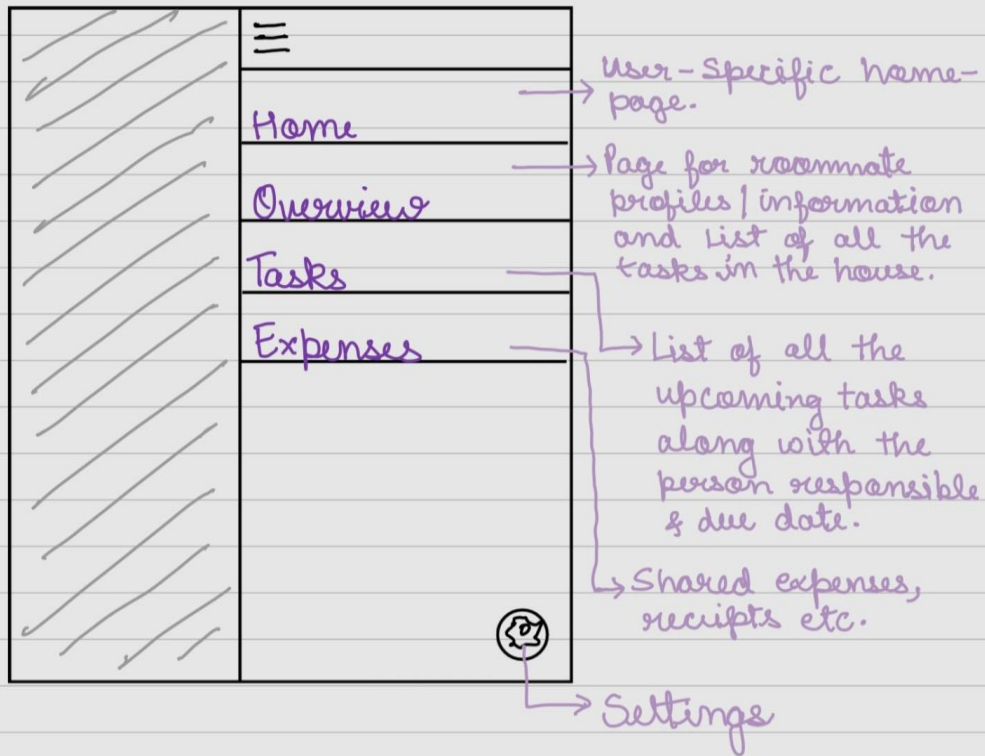 Home
Overview
Tasks
Expenses
User-Specific home-
page.
Page for roommate
profiles/information
and List of all the
tasks in the house.
List of all the
upcoming tasks
along with the
person responsible
& due date.
Shared expenses,
receipts etc.
Settings